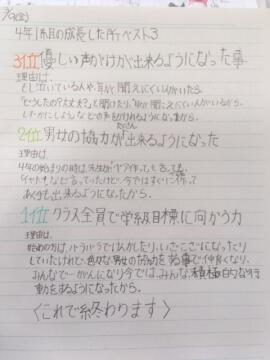 3/9(金)
4年1組の成長した所ベスト3
3位優しい声かけが出来るようになった事
理由は、
もし泣いている人や、耳が聞えにくい人がいたら、
「どうしたの?大丈夫?」と聞けたり、耳が聞えにくい人がいるから、
しずかにしようなどの声をかけられるようになったから。
2位男女の協力がたくさん出来るようになった
理由は、
4年の始まりの時は、先生が「ペア作って。」と言っても
「イヤだ。」など言っていたけど、今ではすぐに作って
あく手も出来るようになったから。
1位クラス全員で学級目標に向かう力
理由は、
始めの方は、バラバラではんかしたり、いざこざになったり
していたけれど、色々な男女の協力をする事で仲良くなり、
みんなで一がんになり今では、みんな積極的な行
動をするようになったから。
〈これで終わります〉